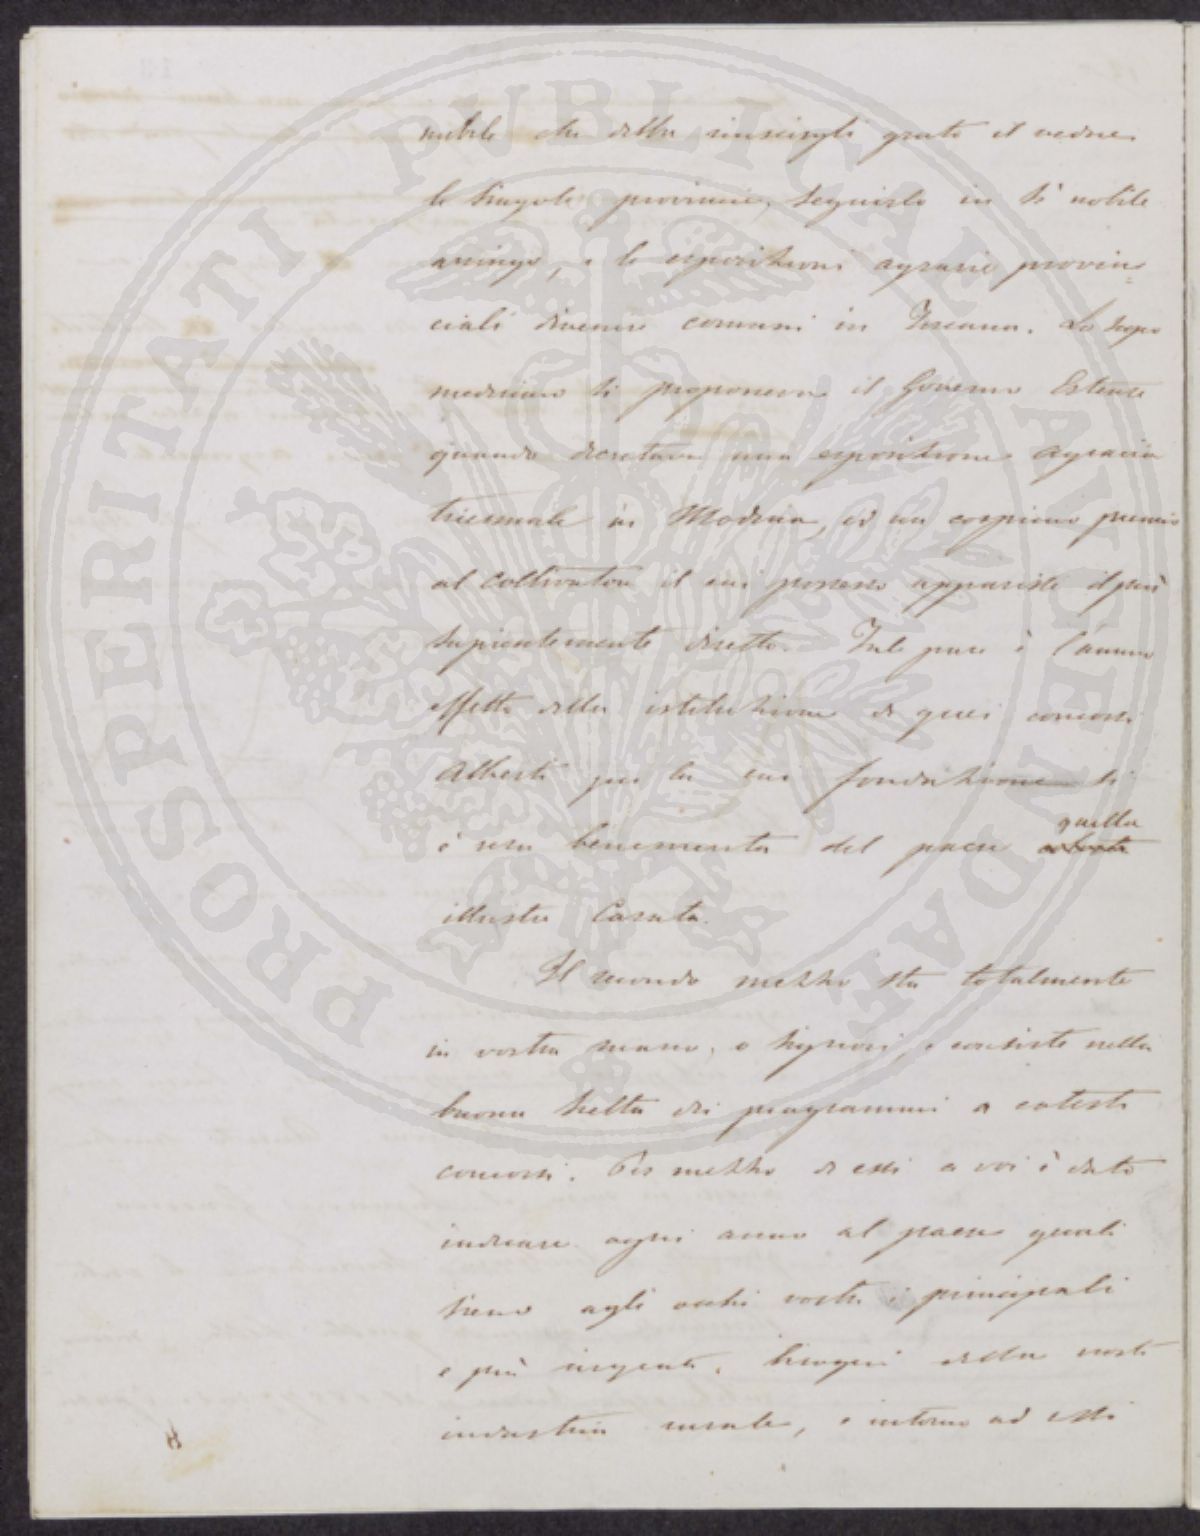 nobile che della riuscirgli grato il vedere
le singole provincie, seguirlo in sì nobile
aringo, e le esposizioni agrarie provin=
ciali divenire comuni in Toscana. Lo scopo
medesimo si proponeva il Governo Estense
quando decretava una esposizione agraria
triennale in Modena, ed un cospicuo premio
al coltivatore il cui possesso apparisse il più
sapientemente diretto. Tale pure è l'annuo
effetto della istituzione di quei concorsi
Alberti per la cui fondazione si
è resa benemerita del paese quella
illustre Casata.
Il secondo mezzo sta totalmente
in vostra mano, o Signori, e consiste nella
buona scelta dei programmi a cotesti
concorsi. Per mezzo di essi a voi è dato
indicare ogni anno al paese quali
sieno agli occhi vostri i principali
e più urgenti bisogni della nostra
industria rurale, e intorno ad essi
PROSPERITATI PVBLICAE AVGENDAE